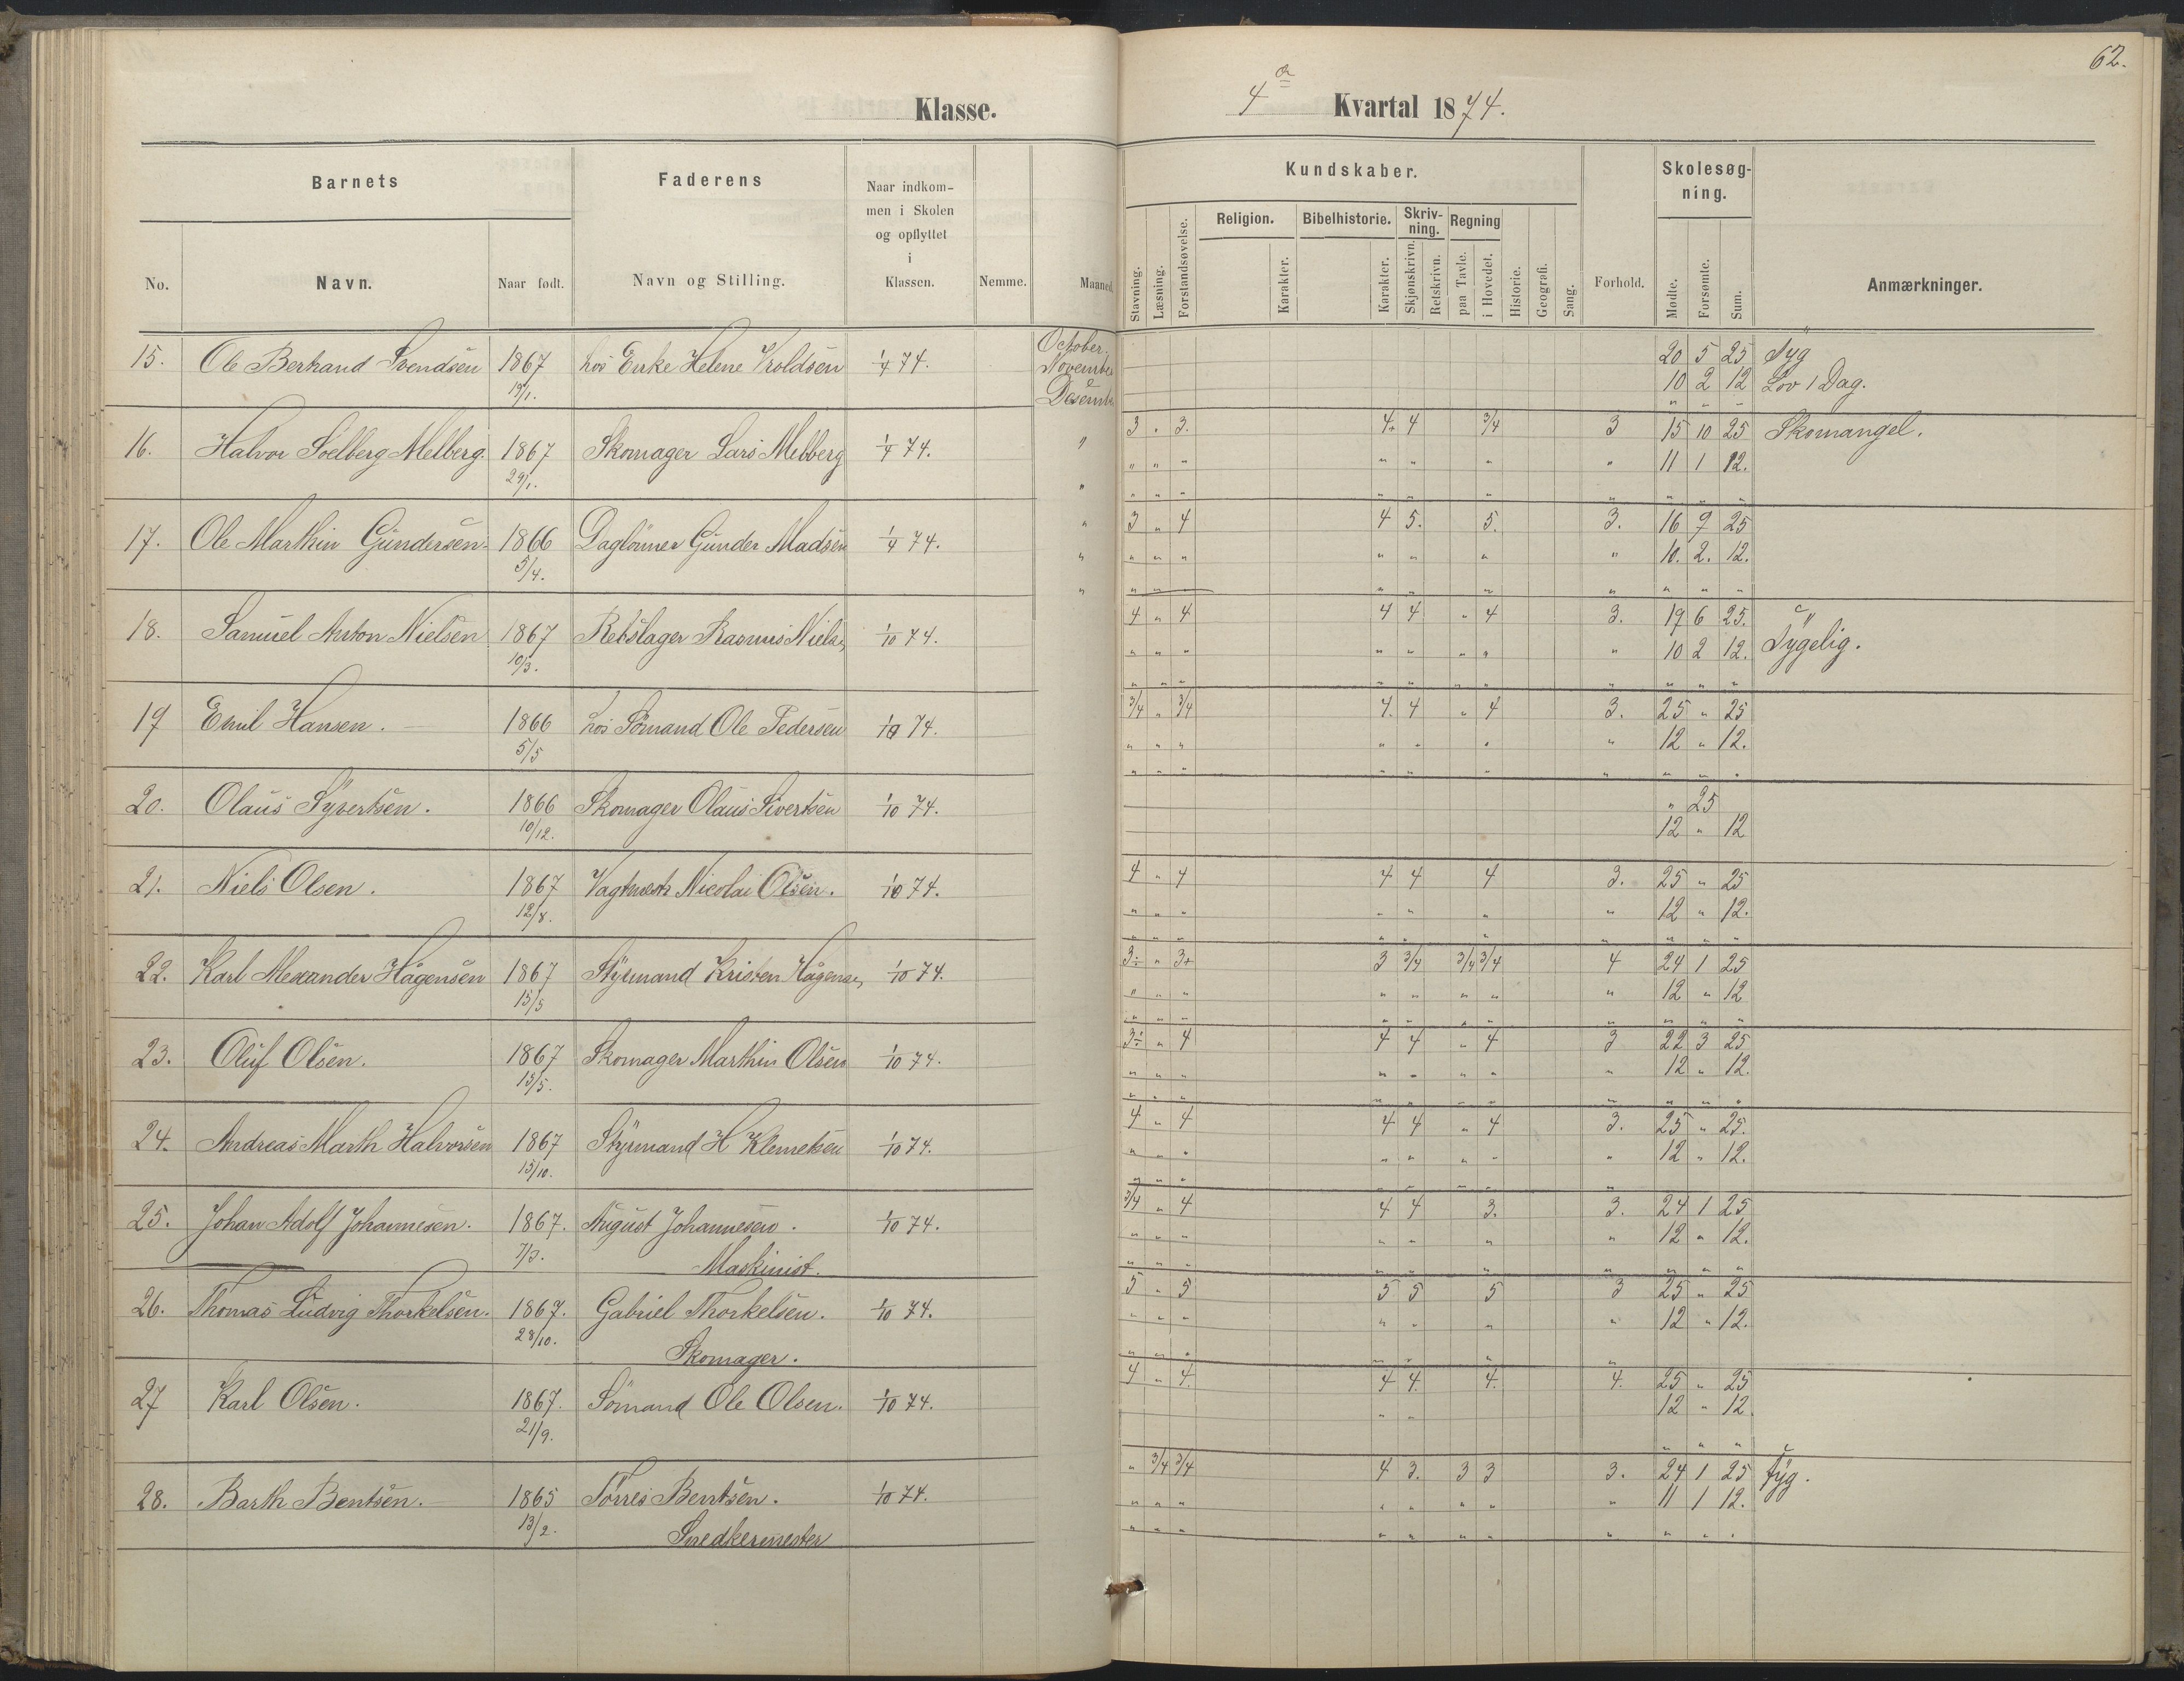 62.
Klasse.
4de Kvartal 1874.
Barnets
Faderens
Naar indkom-
men i Skolen
og opflyttet
i
Klassen.
Kundskaber.
Skolesøg-
ning.
Religion.
Bibelhistorie.
Skriv-
ning.
Regning
No.
Navn.
Naar født.
Navn og Stilling.
Nemme.
Maaned.
Stavning.
Læsning.
Forstandsøvelse.
Karakter.
Karakter.
Skjønskrivn.
Retskrivn.
paa Tavle.
i Hovedet.
Historie.
Geografi.
Sang.
Forhold.
Mødte.
Forsømte.
Sum.
Anmærkninger.
15. Ole Berhand Svendsen 1867 hos Enke Helene Vroldsen 1/4 74. October. 20 5 25 Syg
19/1. November 10 2 12 Lov 1 Dag.
Desemb " " "
16. Halvor Soelberg Melberg. 1867 Skomager Lars Melberg 1/4 74. " 3 " 3. 4. 4 3/4 3 15 10 25 Skomangel.
29/1. " " " " " " " " 11 1 12.
" " " " " " " " " "
17. Ole Marthin Gundersen. 1866 Daglönner Gunder Madsen 1/4 74. " 3 " 4 4 5. 5. 3. 16 9 25
5/4. " " " " " " " " 10. 2. 12.
" " " " " " " " " " "
18. Samuel Anton Nielsen 1867 Rebslager Rasmus Niels. 1/10 74. 4 " 4 4 4 " 4 3. 19 6 25. "
10/3. " " " " " " " " 10 2 12. Sygelig.
" " " " " " " " " " "
19 Emil Hansen. 1866 hos Sömand Ole Pedersen 1/10 74. 3/4 " 3/4 4. 4 " 4 3. 25 " 25
5/5 " " " " " " " 12 " 12.
" " " " " " " " " "
20. Olaus Syvertsen. 1866 Skomager Olaus Sivertsen 1/10 74. " 25
10/12. 12 " 12
21. Niels Olsen. 1867 Nicolai Olsen. 1/10 74. 4 " 4 4 4 4 3. 25 " 25
12/8. " " " " " " " 12 " 12.
" " " " " " " " " "
22. Karl Alexander Hågensen 1867 Styrmand Kristen Hågensen 1/10 74. 3÷ " 3+ 3 3/4 3/4 3/4 4 24 1 25
15/5 " " " " " " " " 12 " 12
" " " " " " " " " " "
23. Oluf Olsen. 1867 Skomager Marthin Olsen 1/10 74. 3÷ " 4 4 4 " 4 3 22 3 25
15/5. " " " " " " " " 12 " 12.
" " " " " " " " " " "
24. Andreas Marth Halvorsen 1867 Styrmand H Klemetsen 1/10 74. 4 " 4 4 4 " 4 3. 25 " 25.
15/10. " " " " " " " " 12 " 12.
" " " " " " "
25. Johan Adolf Johannesen. 1867. August Johannesen. 1/10 74. 3/4 " 4 4 4 3. 3. 24 1 25
7/3. Maskinist. " " " " " " " 12 " 12.
" " " " " " " " " "
26. Thomas Ludvig Thorkelsen. 1867. Gabriel Thorkelsen. 1/10 74. 5 " 5 5 5 5 3 25 " 25
28/10. Skomager. " " " " " " " 12 " 12.
" " " " " " "
27 Karl Olsen. 1867. Sömand Ole Olsen. 1/10 74. 4 " 4. 4 4. 4. 4. 25 " 25
21/9. " " 12 " 12.
" " "
28. Barth Bentsen. 1865 Törres Bentsen. 1/10 74. " 3/4 3/4 4 3. 3 3 3. 24 1 25 Syg.
13/2. Snedkermester " " " " " " " " 11 1 12.
" " " " " " " " " " "